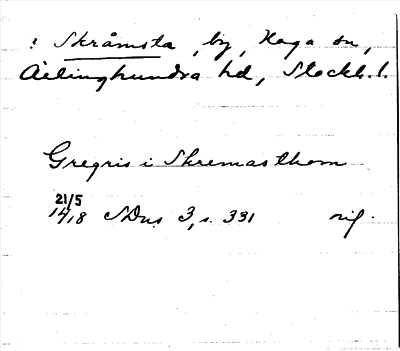 : Skråmsta, by, Haga sn,
Ärlinghundra hd, Stockh. l.
Gregris i Skremasthom
21/5
1418 SDns 3, s. 331 orig.